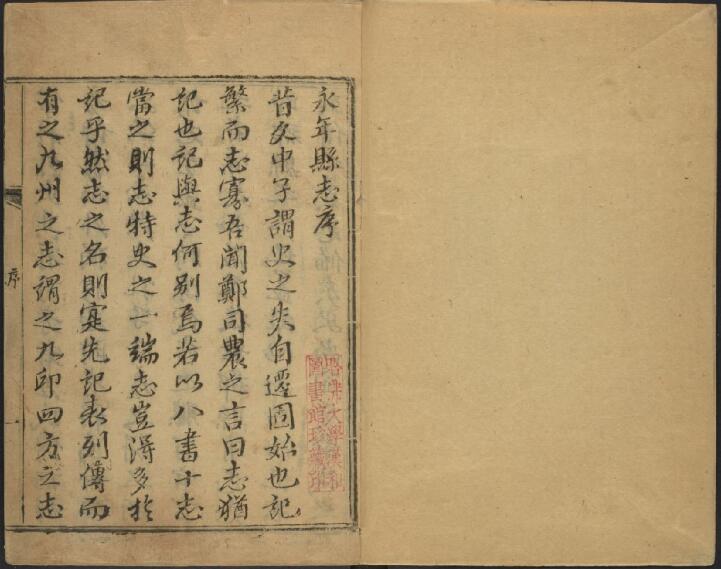 永年縣志序
昔文中子謂史之失自遷固始也記
繁而志寡吾聞鄭司農之言曰志猶
記也記與志何別焉若以八書十志
當之則志特史之一端志豈得多於
記乎然志之名則寔先記表列傳而
有之九州之志謂之九邱四方之志
序
一
哈佛大學漢和
圖書館珍藏印